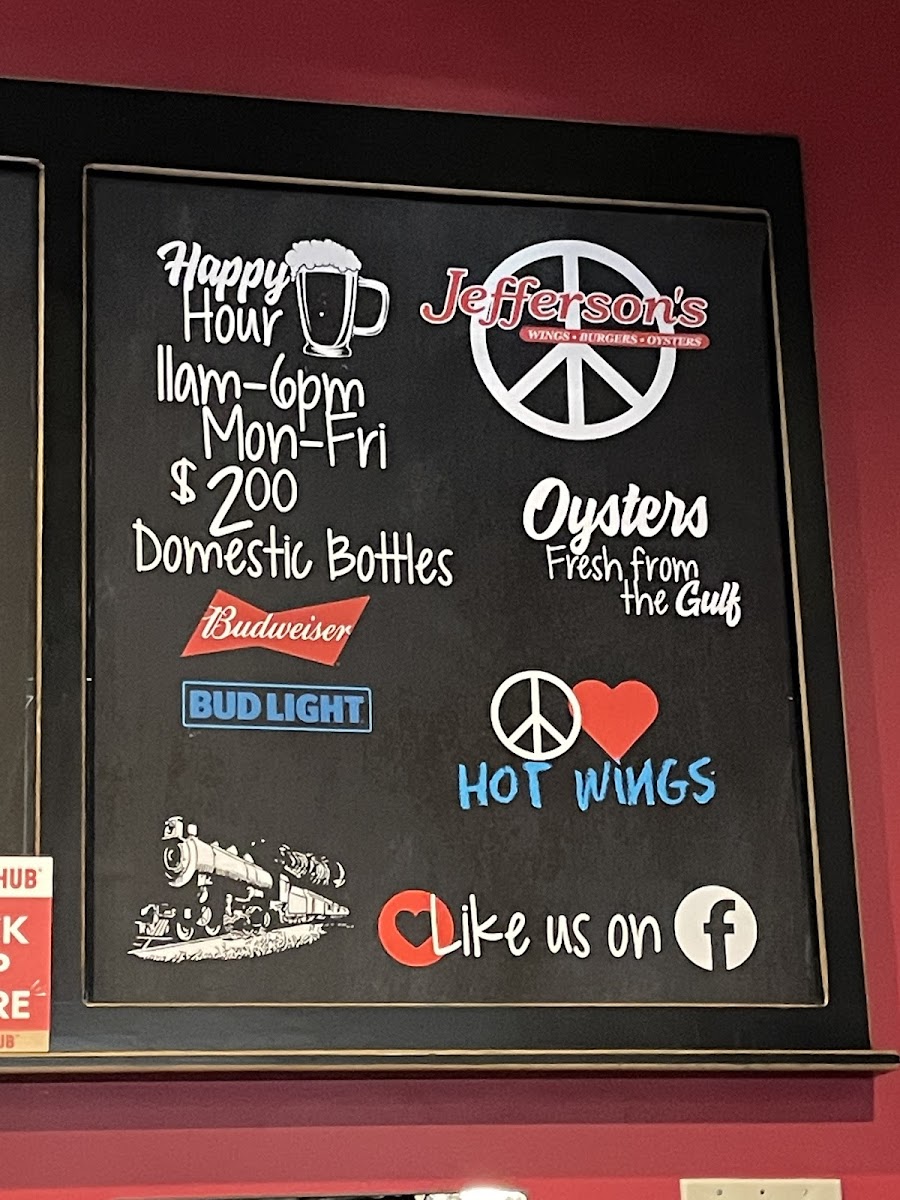 Happy
Hour
11am-6pm
Mon-Fri
$2.00
Domestic Bottles
Budweiser
BUD LIGHT
Jefferson's
WINGS • BURGERS • OYSTERS
Oysters
Fresh from
the Gulf
HOT WINGS
Like us on f
HUB
K
P
RE
UB